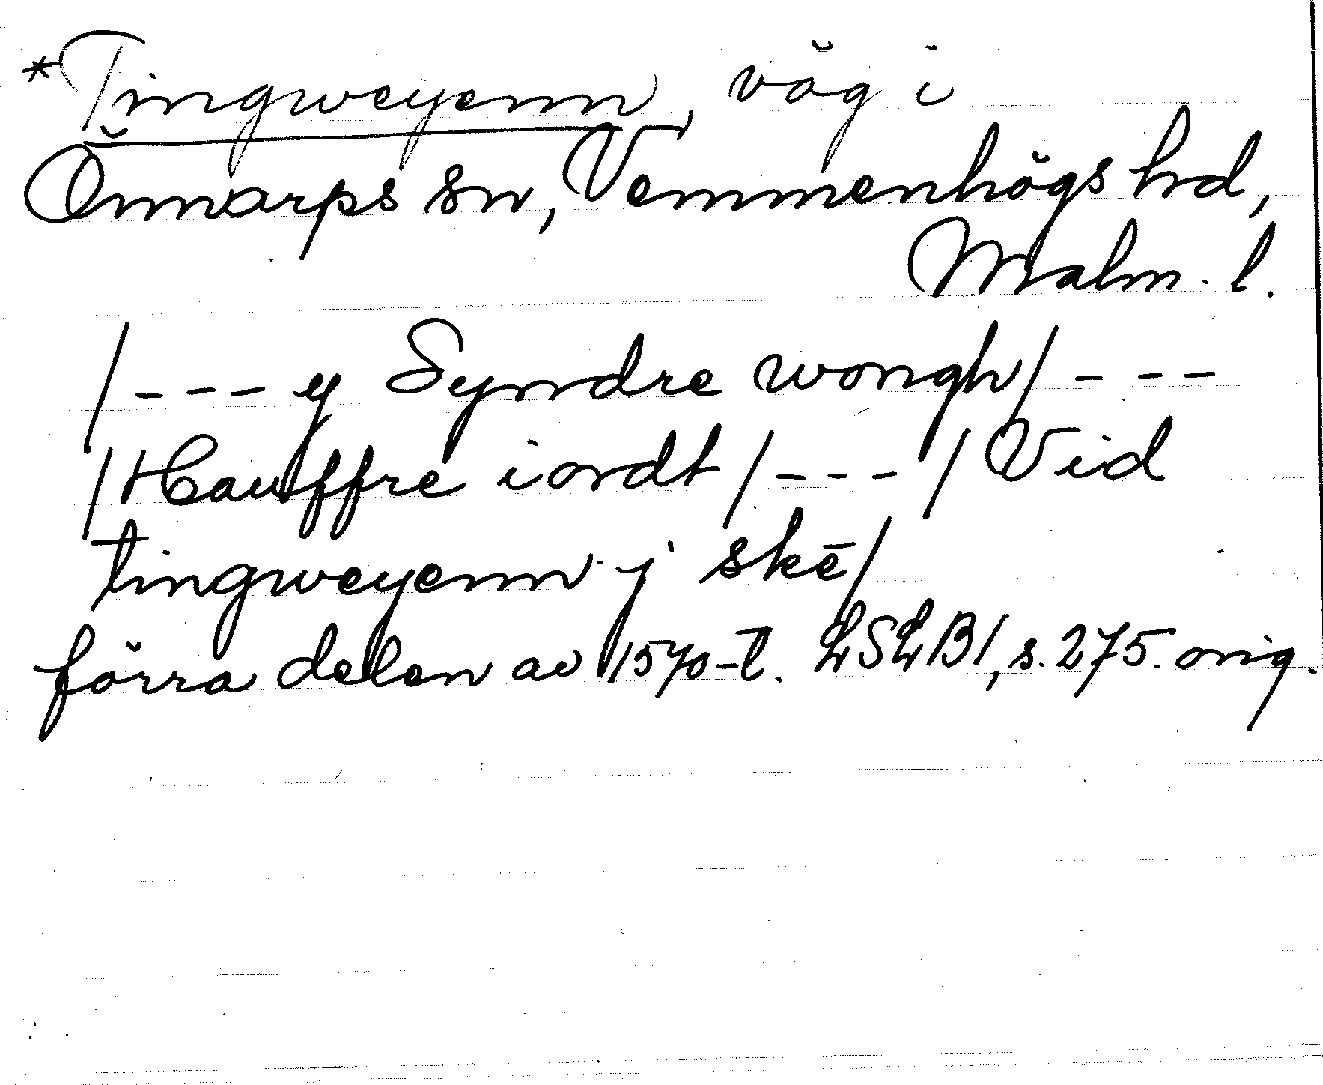 *Tingweyenn, väg i
Önnarps sn, Vemmenhögs hd,
Malm. l.
/--- y Syndre wongh/ ---
/Hauffre iordt/ --- /Vid
tingweyenn j skē/
förra delen av 1570-t. LSLB1, s. 275. orig.